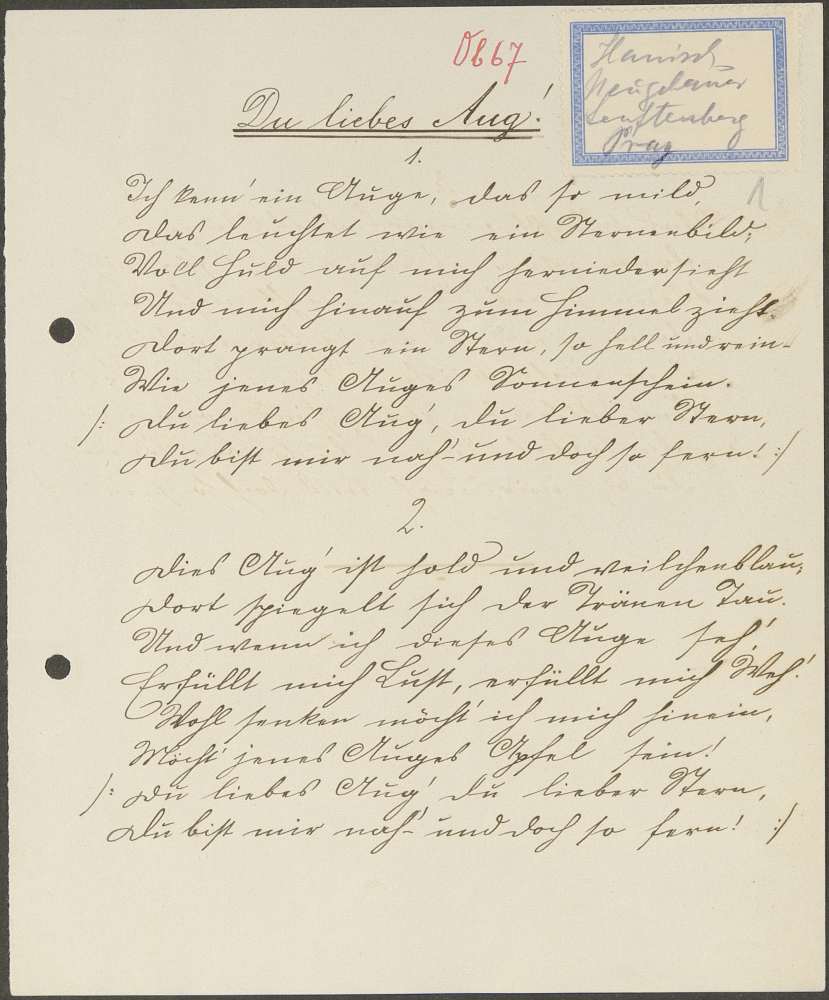 Ob67
Hanisch
Senftenberg
Prag
Du liebes Aug'!
1.
1
Ich kenn' ein Auge, das so mild,
Das leuchtet wie ein Sternenbild;
Voll Huld auf mich herniedersieht
Und mich hinauf zum Himmel zieht.
Dort prangt ein Stern, so hell und rein -
Wie jenes Auges Sonnenschein.
/: Du liebes Aug', du lieber Stern,
Du bist mir nah' - und doch so fern! :/
2.
Dies Aug' ist hold und veilchenblau;
Dort spiegelt sich der Tränen Tau.
Und wenn ich dieses Auge seh',
Erfüllt mich Lust, erfüllt mich Weh'!
Wohl senken möcht' ich mich hinein,
Möcht' jenes Auges Apfel sein!
/: Du liebes Aug', du lieber Stern,
Du bist mir nah' - und doch so fern! :/